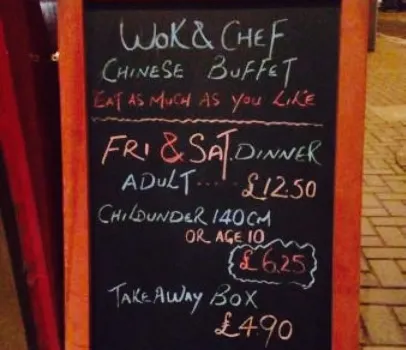 WOK & CHEF
CHINESE BUFFET
EAT AS MUCH AS YOU LIKE
FRI & SAT. DINNER
ADULT .... £12.50
CHILD UNDER 140CM
OR AGE 10
£6.25
TAKE AWAY BOX
£4.90